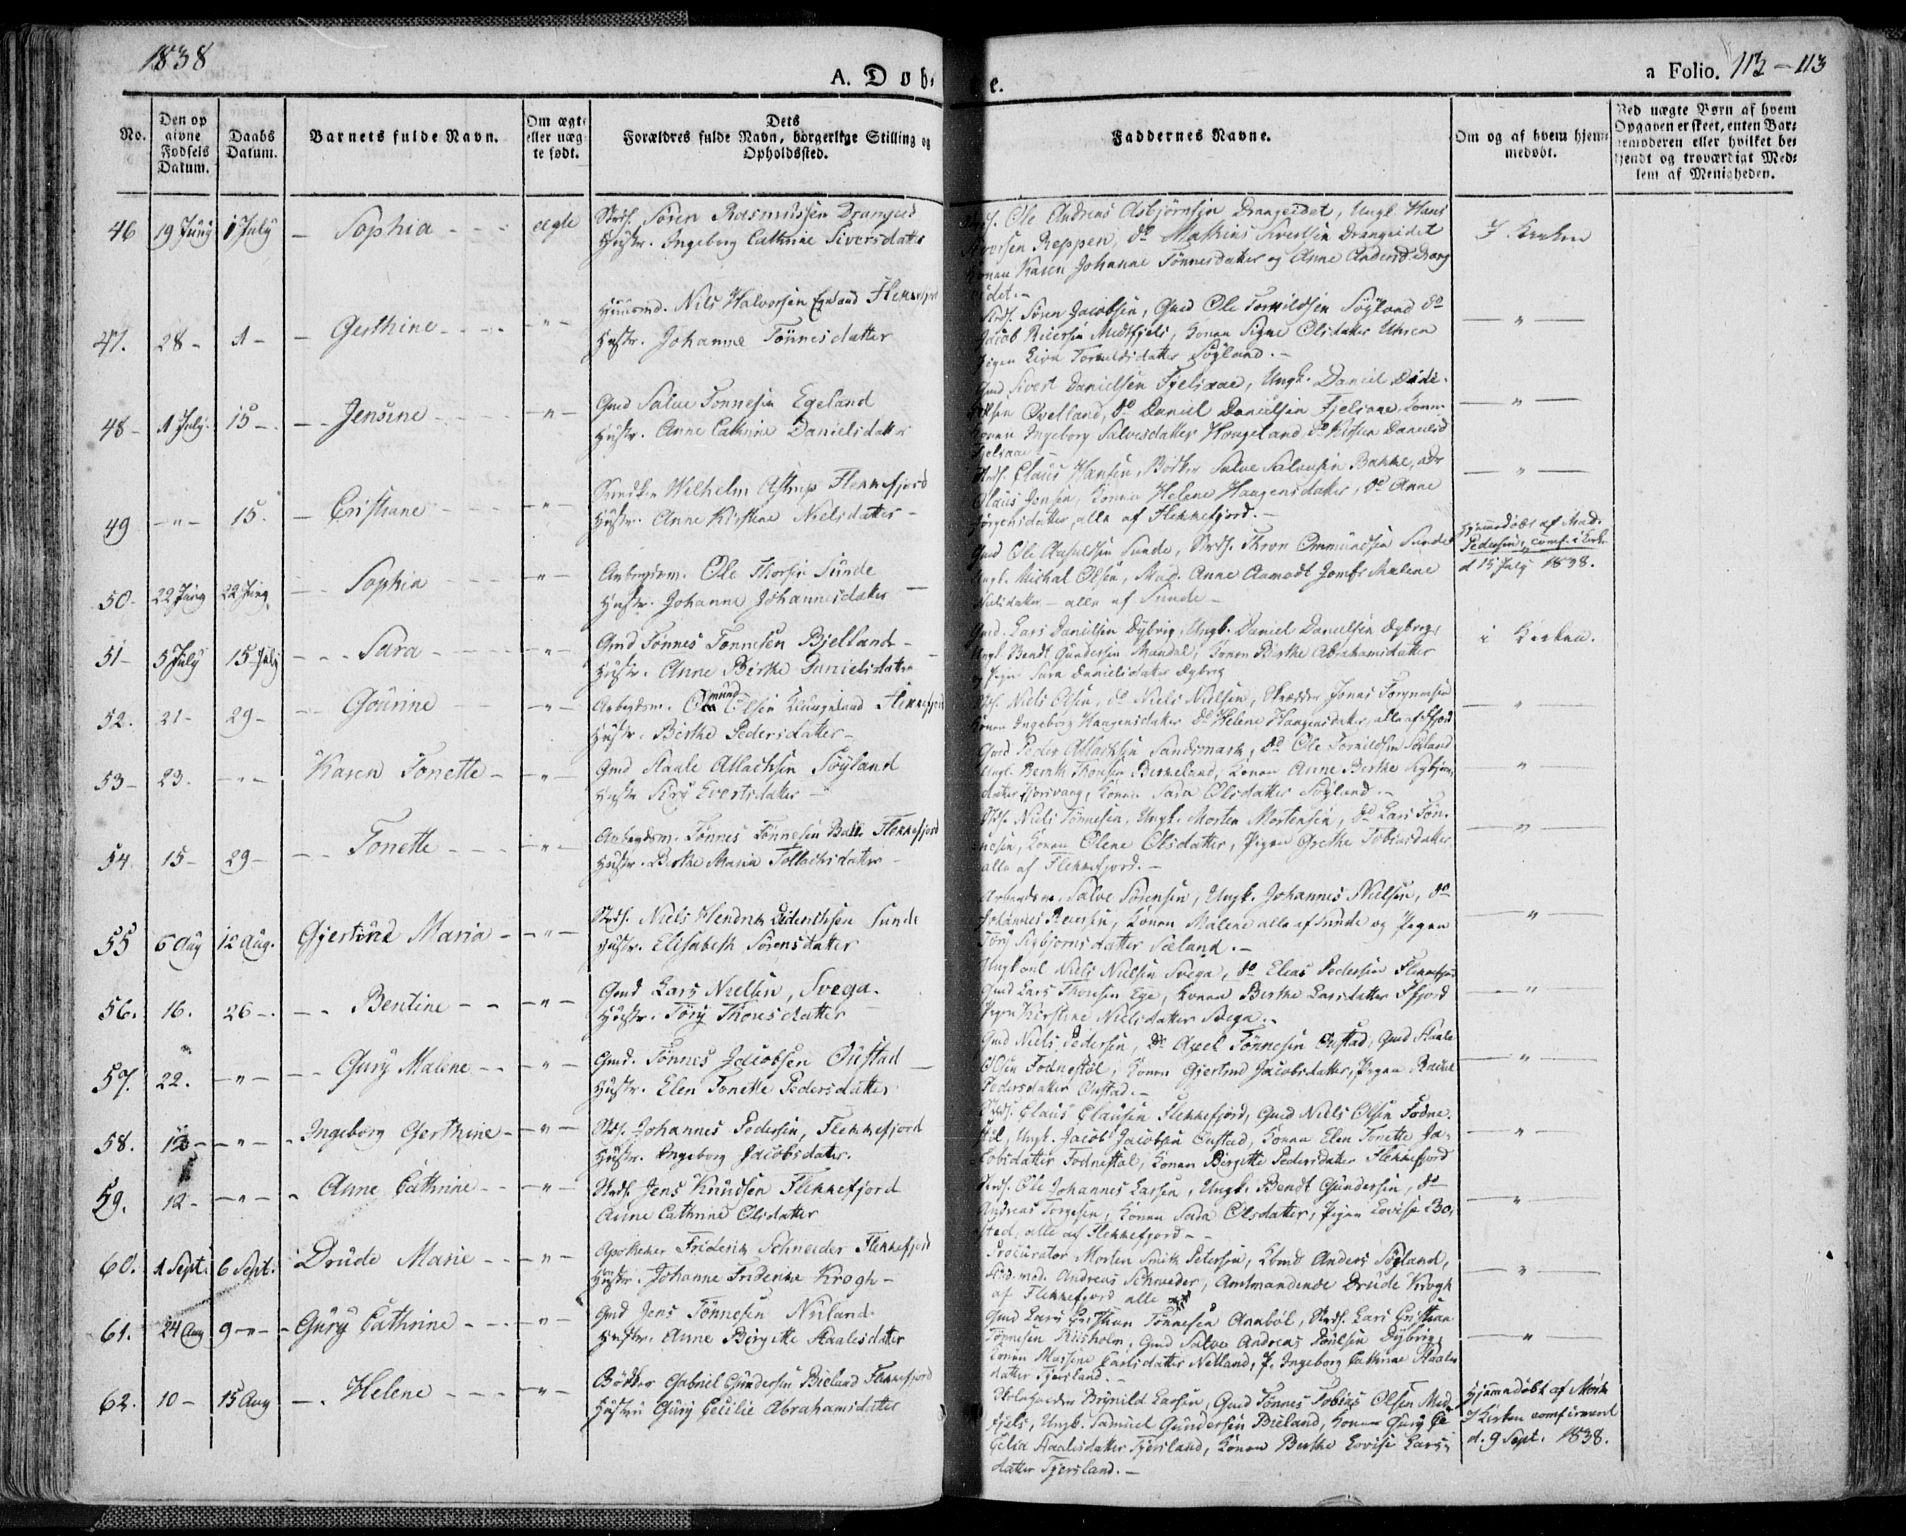 1838
A. Døbte.
a Folio. 112-113
No.
Den opgivne Fødsels Datum.
Daabs Datum.
Barnets fulde Navn.
Om ægte eller uægte født.
Dets Forældres fulde Navn, borgerlige Stilling og Opholdssted.
Faddernes Navne.
Om og af hvem hjemmedøbt.
Ved uægte Børn af hvem Opgaven er skeet, enten Barnemoderen eller hvilket bekjendt og troværdigt Medlem af Menigheden.
46 19 Juny 1 July - Sophia - - - ægte
Strds. Sören Rasmussen Drangeid
Hustr. Ingeborg Cathrine Siversdatter
Strds. Ole Andreas Asbjörnsen Drangeidet, Ungk. Hans
Reppen, do Mathias Sivertsen Drangeidet
Konen Karen Johanne Tönnesdatter og Anne
I Kirken
47. 28 - 1 - - Gerthine - - - "
Nils Halvorsen Egeland Flekkefjord
Hustr. Johanne Tönnesdatter
Strds. Sören Jacobsen, Gmd Ole Torkildsen Söyland do
Jacob Reiersen Midtfjels, Konen Signe Olsdatter
Pigen Torkildsdatter Söyland. -
- " -
48 - 1 July. 15 - - Jensine - - - "
Gmd Salve Tönnesen Egeland
Hustr. Anne Cathrine Danielsdatter
Gmd Sivert Danielsen Fjelsaae, Ungk. Daniel
Qvelland, do Daniel Danielsen Fjelsaae,
Konen Ingeborg Salvesdatter Houghland,
- " -
49 - " - 15. - Cristhane - - - "
Wilhelm Astrup Flekkefjord
Hustr. Anne Kirstine Nielsdatter -
Strds. Claus Hansen, Bödker Salve Salvesen Bakke,
Claus Jensen, Konen Helene Haagensdatter, do Anne
Jörgensdatter, alle af Flekkefjord. -
- " -
50. 22 Juny 22 Juny - Sophia - "
Arbeydsm. Ole Thorsen Sunde
Hustr. Johanne Johannesdatter -
Gmd Ole Sunde, Strds. Thron Ommundsen Sunde
Ungk. Michal Olsen, Mad. Anne Aamodt Jomf. Malene
Nielsdatter - alle af Sunde -
Hjemmedöbt af Mad.
Pedersen, comf. i Kirk.
d 15 July 1838.
51 - 5 July 15 July - - Sara - - - "
Gmd Tönnes Tönnesen Bjelland -
Hustr. Anne Birthe Danielsdatter
Gmd. Lars Danielsen Dybvig, Ungk. Daniel Danielsen Dybvig,
Ungk. Bendt Gundersen Mandal, Konen Birthe Abrahamsdatter
Pigen Sara Danielsdatter Dybvig
i Kirken.
52. 21 - 29 - - Gourine - - "
Arbeydsm. Omund Olsen Flekkefjord
Hustr. Birthe Pedersdatter -
Strds. Niels Olsen, do Niels Nielsen, Skrædder Jonas
Konen Ingeborg Haagensdatter do Helene Haagensdatter, alle af Ffjord
- " -
53 - 23. - " - Karen Tonette - "
Gmd Staale Atlachsen Söyland
Hustr Siry Evertsdatter -
Gmd Peder Atlachsen Sandsmark, do Ole Torkildsen Söyland
Ungk. Bernth Thorsen Birkeland, Konen Anne Birthe
datter Tjorsvaag, Konen Sara Olsdatter Söyland. -
- " -
54. 15 - 29 - - - Tonette - - - "
Arbeydsm. Tönnes Tönnesen Flekkefjord
Hustr. Birthe Maria Tollachsdatter -
Strds. Niels Tönnesen, Ungk. Morten Mortensen, do Lars Tön-
nesen, Konen Olene Olsdatter, Pigen Grethe Tobiasdatter
alle af Flekkefjord. -
- " -
55 6 Aug 12 Aug. Gjertrud Maria - - "
Strds. Niels Hendrik Sunde
Hustr. Elisabeth Sörensdatter
Arbeydsm. Salve Sörensen, Ungk. Johannes Nielsen, do
Johannes Reiersen, Konen Malene alle af Sunde og Pigen
Söland. -
- " -
56. 16. 26 - - - Bentine - - "
Gmd Lars Nielsen, Svega.
Hustr. Töry Thoresdatter
Ungkarl Niels Nielsen Svega, do Elias Pedersen Flekkefjord
Gmd Lars Thorsen Ege, Konen Birthe Larsdatter Ffjord
Pigen Kirstine Nielsdatter Svega. -
- " -
57. 22. - " - - - Gury Malene - - "
Gmd. Tönnes Jacobsen Oustad
Hustr. Elen Tonette Pedersdatter
Gmd Niels Pedersen, do Axel Tönnesen Oustad, Gmd Staale
Olsen Fodnestöl, Konen Gjertrud Jacobsdatter, Pigen Rachel
Pedersdatter Oustad. -
- " -
58. 13 - - " - - Ingeborg Gerthine - "
Strds. Johannes Pedersen, Flekkefjord
Hustr. Ingeborg Jacobsdatter.
Strds. Claus Clausen Flekkefjord, Gmd Niels Olsen Fodne-
stöl, Ungk. Jacob Jacobsen Oustad, Konen Elen Tonette Ja-
cobsdatter Fodnestöl, Konen Birgitte Pedersdatter Flekkefjord
- " -
59. 12 - - " - - Anne Cathrine - - "
Strds. Jens Knudsen Flekkefjord
Anne Cathrine Olsdatter
Strds. Ole Johannes Larsen, Ungk. Bendt Gundersen, do
Andreas Torgesen, Konen Sara Olsdatter, Pigen Lovise Bo-
sted, alle af Flekkefjord - -
- " -
60. 1 Sept. 6 Sept. - Drude Marie - - "
Apotheker Friderik Schneider Flekkefjord
Hustr. Johanne Friderike Krogh -
Procurator Morten Smith Petersen, Kbmd Anders Söyland,
Andreas Schneider, Amtmandinde Drude Krogh
af Flekkefjord alle
- " -
61. 24 Aug 9 - " - - Gury Cathrine - - - "
Gmd Jens Tönnesen Niiland
Hustr. Anne Birgitte Staalesdatter
Gmd Lars Cristhian Tönnesen Anaböl, Strds. Lars Cristhian
Tönnesen Riisholm, Gmd Salve Andreas Poulsen Dybvig,
Konen Massine Carlsdatter Netland, P. Ingeborg Cathrine Staales
datter Tjersland. -
- " -
62. 10 - 15 Aug - . Helene - - - - "
Bödker Gabriel Gundersen Bieland Flekkefjord
Hustru Gury Cecilie Abrahamsdatter
Brynild Larsen, Gmd Tönnes Tobias Olsen Med-
fjels, Ungk. Samuel Gundersen Bieland, Konen Gury Ce-
celia Staalesdatter Tjersland, Konen Berthe Lovise Lars-
datter Tjersland. -
Hjemmedöbt af Mork
I Kirken comfirmered
d. 9 Sept. 1838.